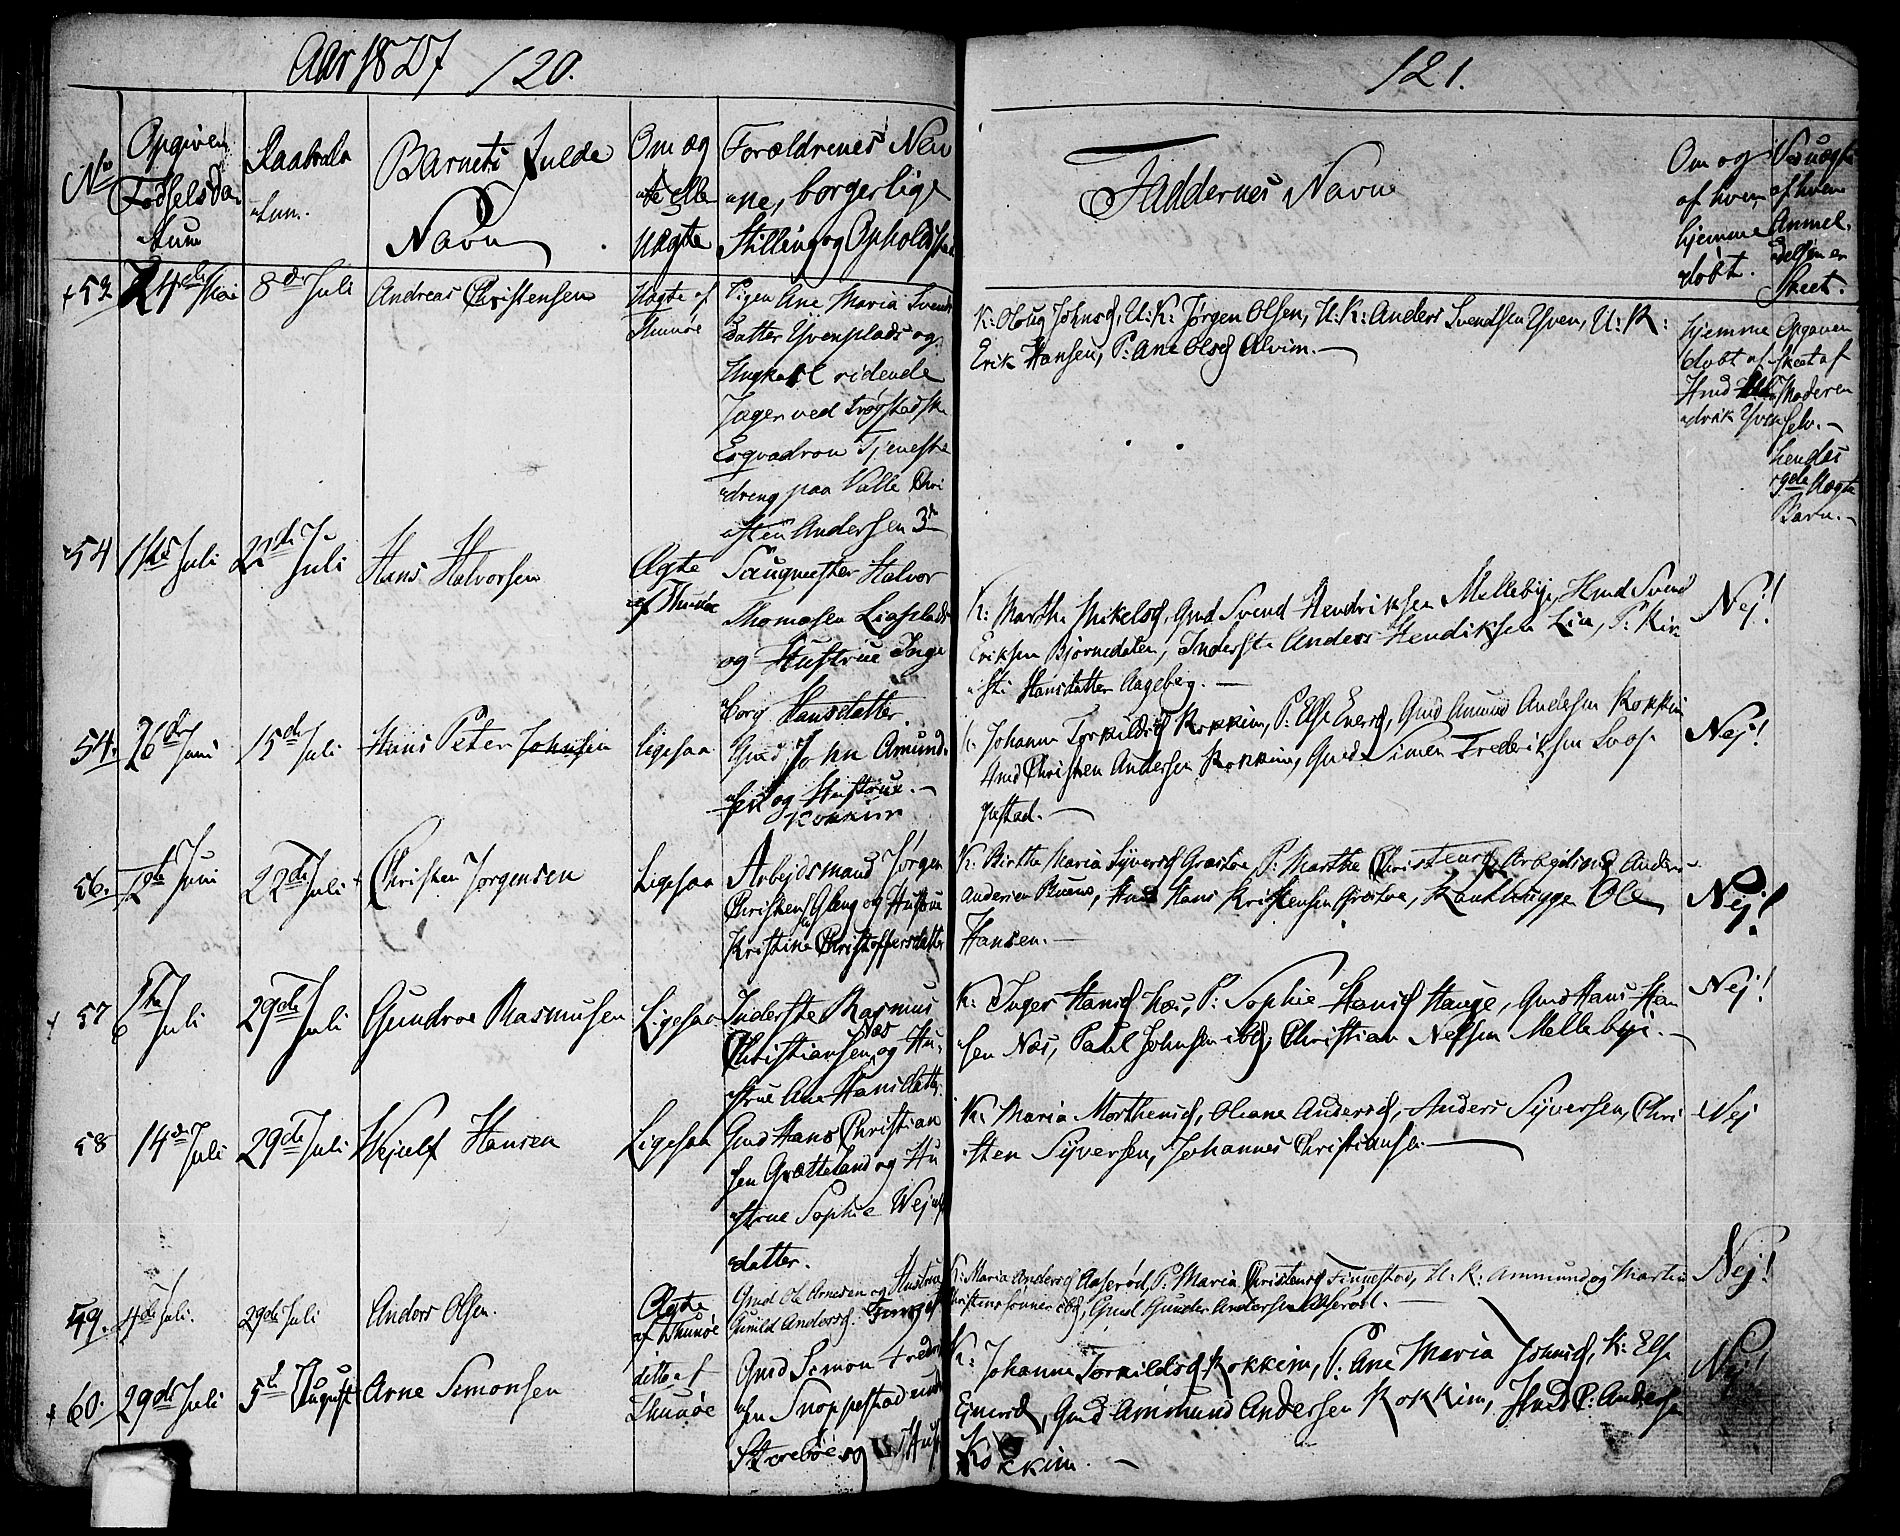 Aar 1827
120.
121.
No
Opgiven Fødselsda- tum
Daabsda- tum.
Barnets fulde Navn
Om æg- te elle uægte
Forældrenes Nav- ne, borgerlige Stilling og Opholds
Faddernes Navne
Om og af hvem hjemme døbt.
af hvem Anmel- delsen er Skeet.
+ 53 24de Mai 8de Juli Andreas Christensen Uægte af Thunöe
Pigen Ane Maria Svends
datter Yvenplads og
Ungkarl ridende
Jager ved Trøgstadske
Esqvadron Tjeneste
dreng paa Valle Chri
sten Andersen 3
K: Jörgen Olsen, U: K: Anders Svendsen Yven, U: K:
Erik Hansen, P: Ane Olsd Alvim. —
hjemme
døbt af
Yven
Opgaven
Skeet af
Moderen
selv. —
hendes
Uægte
Barn. —
54 1ste Juli 22de Juli Hans Halvorsen Ægte af Thunöe
Saugmester Halvor
Thomasen Liaplads
og Hustrue Inge
borg Hansdatter.
K: Marthe Mikelsd, Gmd Svend Hendriksen Mellebye, Hmd Svend
Eriksen Bjørnedalen, Inderste Anders Hendiksen Lia, P: Kir
sti Hansdatter Aageberg. —
Nej!
54. 26de Juni 15de Juli Hans Peter Johnsen ligesaa
Gmd John Amund-
sen og Hustrue. —
Kokkim
K: Johanne Torkildsd Kokkim, P: Else Enersd, Gmd Amund Andersen Kokkim
Hmd Christen Andersen Kokkim, Gmd Simen Frederiksen Snop-
pestad. —
Nej!
56. Juni 22de Juli Christen Jørgensen Ligesaa
Arbejdsmand Jørgen
Christens Gleng og Hustrue
Kristine Christoffersdatter
K: Birthe Maria Syversd P: Marthe Christensd Arbejdsmd Anders
Andersen Hmd Hans Kristensen Ole
Hansen. —
Nej!
+ 57 6te Juli 29de Juli Gundroe Rasmusen Ligesaa
Inderste Rasmus
Christiansen Næs og Hu-
strue Ane Hansdatter.
K. Inger Hansd Næs, P: Sophie Hansd Hauge, Gmd Hans Han
sen Næs, Paul Johnsen ibd, Christian Nelsen Mellebye. —
Nej!
58 14de Juli 29de Juli Wejulf Hansen Ligesaa
Gmd Hans Christian
sen Grætteland og Hu
strue Sophie Wejulfs
datter.
K: Maria Morthensd, Oliane Andersd, Anders Syversen, Chri
sten Syversen, Johannes Christiansen —
Nej
59. 4de Juli. 29de Juli Anders Olsen. Ægte af Thunöe
Gmd Ole Arnesen og Hustrue
Gunild Andersd.
K: Maria Andersd Aaserød, P: Maria Christensd Finnestad, U: K: Ammund og Martin
Christens sønner ibd, Gmd Gunder Andersen Aaserød. —
Nej!
+ 60. 29de Juli 5te August Arne Simonsen ditto af Thunöe
Gmd Simon Fredri
sen Snoppestad
Storeböe og
K: Johanne Torkildsd Kokkim, P: Ane Maria Johnsd, K: Else
Ejnersd, Gmd Ammund Andersen Kokkim, Hmd P: Andersen
Kokkim. —
Nej!